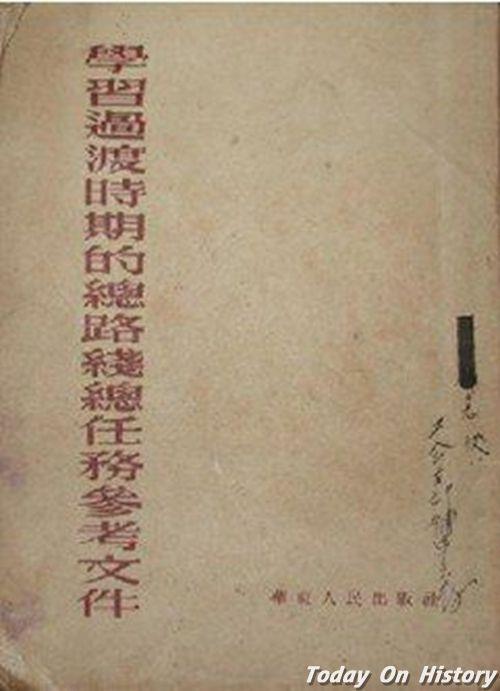 學習過渡時期的總路綫總任務參考文件
華東人民出版社
Today On History